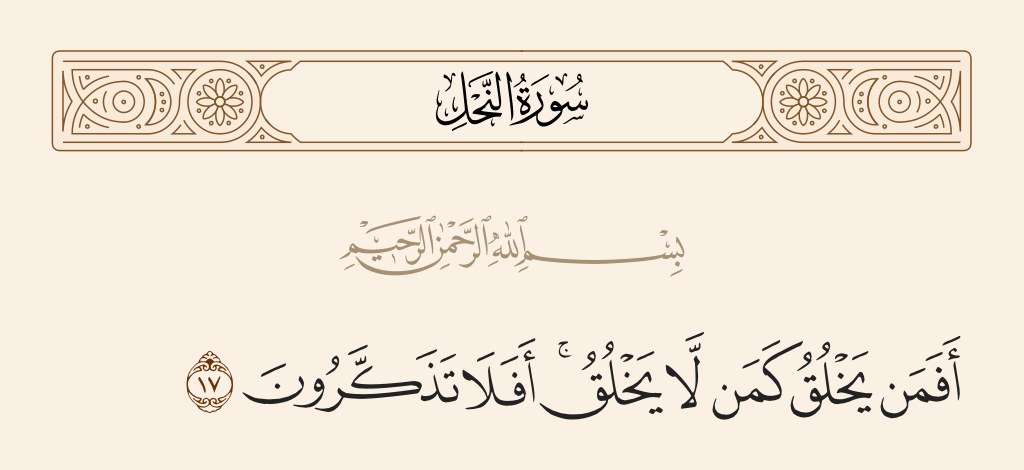 سُورَةُ النَّحْلِ
بِسْمِ ٱللَّهِ ٱلرَّحْمَٰنِ ٱلرَّحِيمِ
أَفَمَن يَخْلُقُ كَمَن لَّا يَخْلُقُ ۚ أَفَلَا تَذَكَّرُونَ ١٧